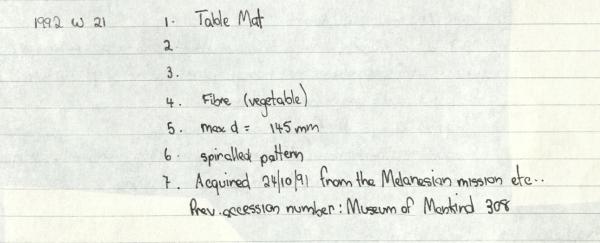 1992 W 21 1. Table Mat
2
3.
4. Fibre (vegetable)
5. max d = 145 mm
6. spiralled pattern
7. Acquired 24/10/91 from the Melanesian mission etc..
Prev. accession number: Museum of Mankind 308